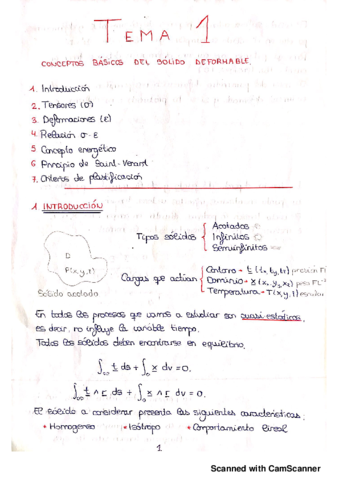 TEMA 1
CONCEPTOS BÁSICOS DEL SÓLIDO DEFORMABLE.
1. Introducción
2. Tensores (σ)
3. Deformaciones (ε)
4. Relación σ-ε
5 Concepto energético
6 Principio de Saint-Venant
7. Criterios de plastificación
1 INTRODUCCIÓN
Tipos sólidos
Acotados
Infinitos
Semiinfinitos
D
P(x,y,z)
Sólido acotado
Cargas que actúan
Contorno → t (tx, ty, tz) presión
Dominio → X (x, y, z) peso
Temperatura → T(x,y,z) escalar
En todos los procesos que vamos a estudiar son cuasi-estáticos,
es decir, no influye la variable tiempo.
Todos los sólidos deben encontrarse en equilibrio.
∫ t ds + ∫ X dv = 0.
∫ t ∧ r ds + ∫ X ∧ r dv = 0.
El sólido a considerar presenta las siguientes características:
• Homogéneo • Isótropo • Comportamiento lineal
1
Scanned with CamScanner